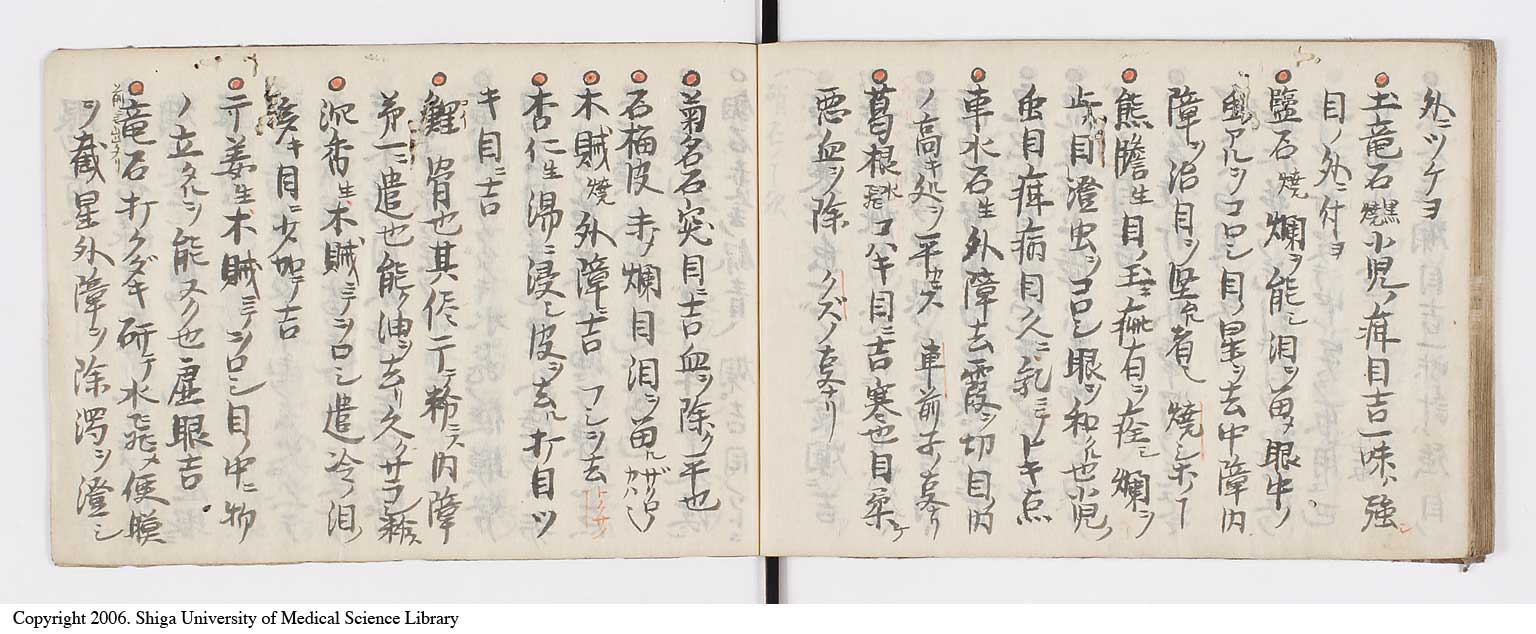 外ニツケヨ
土竜石黒焼小児ノ疳目吉一味ハ強シ
目ノ外ニ付ヨ
鹽石焼爛ヲ能シ泪ヲ留メ眼中ノ
虫アルヲコロシ目ノ星ヲ去中障内
障ヲ治目ヲ堅 者也 焼シホノ
熊膽生目ノ玉ニ疵有ヲ痊シ爛ヲ
歩 目澄虫ヲコロシ眼ヲ和ク也小児ノ
虫目疳病目ノ久ニ乳ニテトキ点
車水石生外障去霞ヲ切目ノ内
ノ高キ処ヲ平カニス 車前子ノ 也
葛根水 コハキ目ニ吉寒也目柔ケ
悪血ヲ除 クズノ
菊名石突目ニ吉血ヲ除ク平也
石梅皮 爛目泪ヲ留ルザクロノカハ也
木賊焼外障ニ吉フシヲ去トクサ
杏仁生湯ニ浸シ皮ヲ去ル打目ツ
キ目ニ吉
鯉コイ 膽也其侭ニテ粉ニス内障
第一ニ遣也能ク油ヲ去リ久クサラシ粉ス
沉香生木賊ニテヲロシ遣冷ノ泪
キ目ニ少加テ吉
干姜生木賊ニテヲロシ目ノ中ニ物
ノ立タルヲ能ヌク也虚眼吉
前ニ出タリ
竜石打クダキ研テ水飛メ便膜
ヲ截星外障ヲ除濁ヲ澄シ
Copyright 2006. Shiga University of Medical Science Library